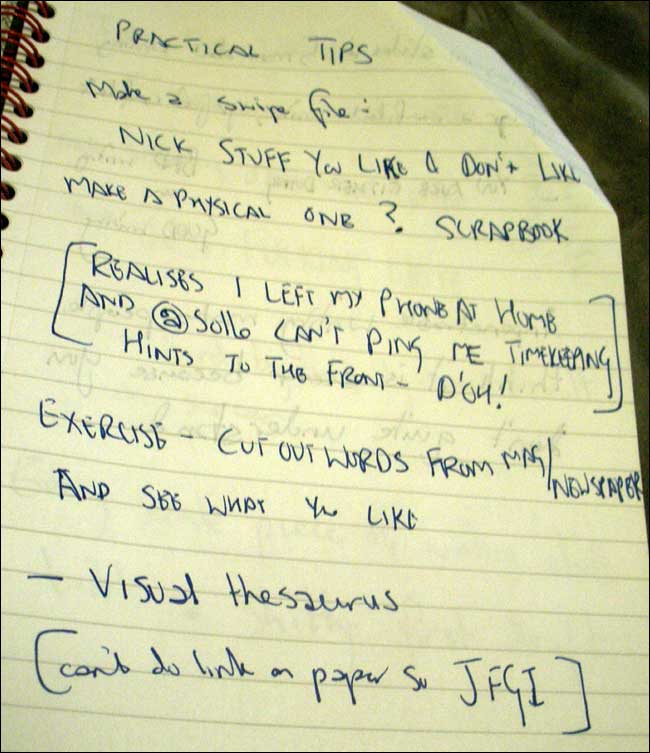 PRACTICAL TIPS
Make a swipe file:
NICK STUFF YOU LIKE & DON'T LIKE
MAKE A PHYSICAL ONE? SCRAPBOOK
[REALISES I LEFT MY PHONE AT HOME
AND @Sollo CAN'T PING ME TIMEKEEPING
HINTS TO THE FRONT - D'OH!]
EXERCISE - CUT OUT WORDS FROM MAG/
NEWSPAPER
AND SEE WHAT YOU LIKE
- Visual thesaurus
[can't do link on paper so JFGI]